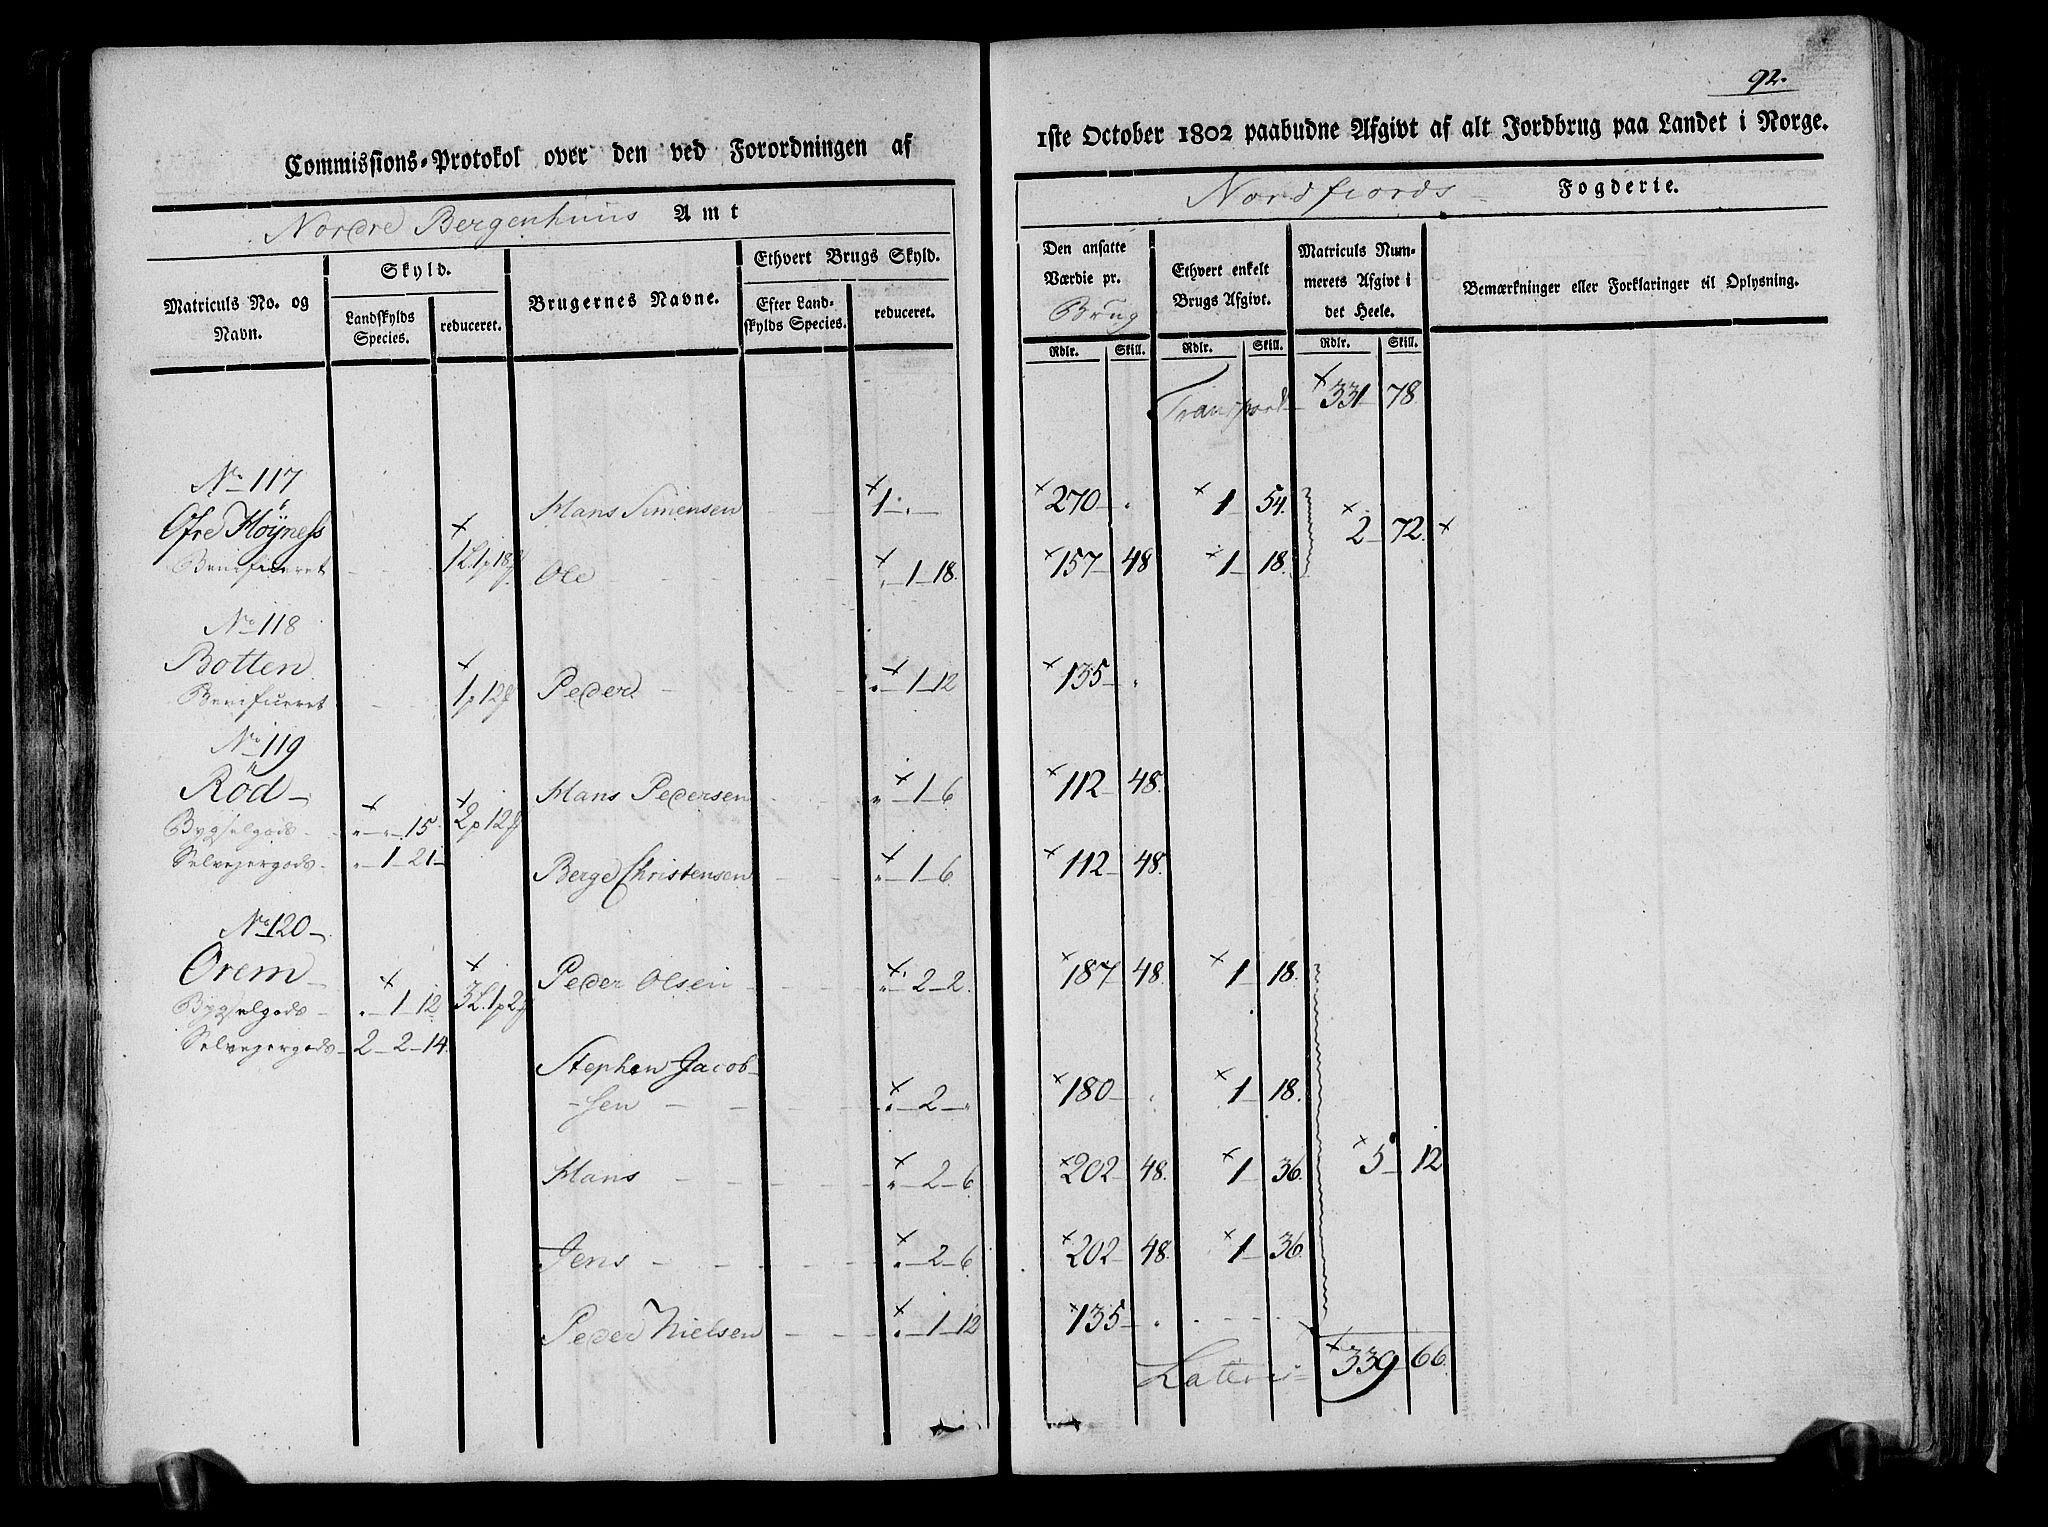 92.
Commissions-Protokol over den ved Forordningen af
1ste October 1802 paabudne Afgivt af alt Jordbrug paa Landet i Norge.
Nordre Bergenhuus Amt
Nordfiords Fogderie.
Matriculs No. og Navn.
Skyld.
Landskylds Species.
reduceret.
Brugernes Navne.
Ethvert Brugs Skyld.
Efter Landskylds Species.
reduceret.
Den ansatte Værdie pr. Brug
Rdlr. Skill.
Ethvert enkelt Brugs Afgivt.
Rdlr. Skill.
Matriculs Nummerets Afgivt i det Heele.
Rdlr. Skill.
Bemærkninger eller Forklaringer til Oplysning.
Transport × 331 78
No 117
Øfre Höyness Hans Simensen × 1 „ — × 270 „ × 1 54. × 2 72. ×
Benificeret × 1L. 1p 18f Ole × „ 1 18. × 157 48 × 1 18.
No 118
Botten
Benificeret × 1p 12f Peder × „ 1 12 × 135 „
No 119
Röd Hans Pedersen × „ 1 6 × 112 48.
Bygselgods × „ „ 15. × 2p 12f
Selvejergods „ 1 21 Berge Christensen × „ 1 6 × 112 48.
No 120
Orem Peder Olsen × „ 2 2. × 187 48. × 1 18.
Bygselgods × „ 1 12 × 3L. 1p 2f
Selvejergods 2 2 14. Stephen Jacob-
sen × „ 2 „ × 180 „ × 1 18.
Hans × „ 2 6 × 202 48. × 1 36. × 5 12
Jens × „ 2 6 × 202 48. × 1 36.
Peder Nielsen × „ 1 12 × 135 „
Lateri × 339 66.